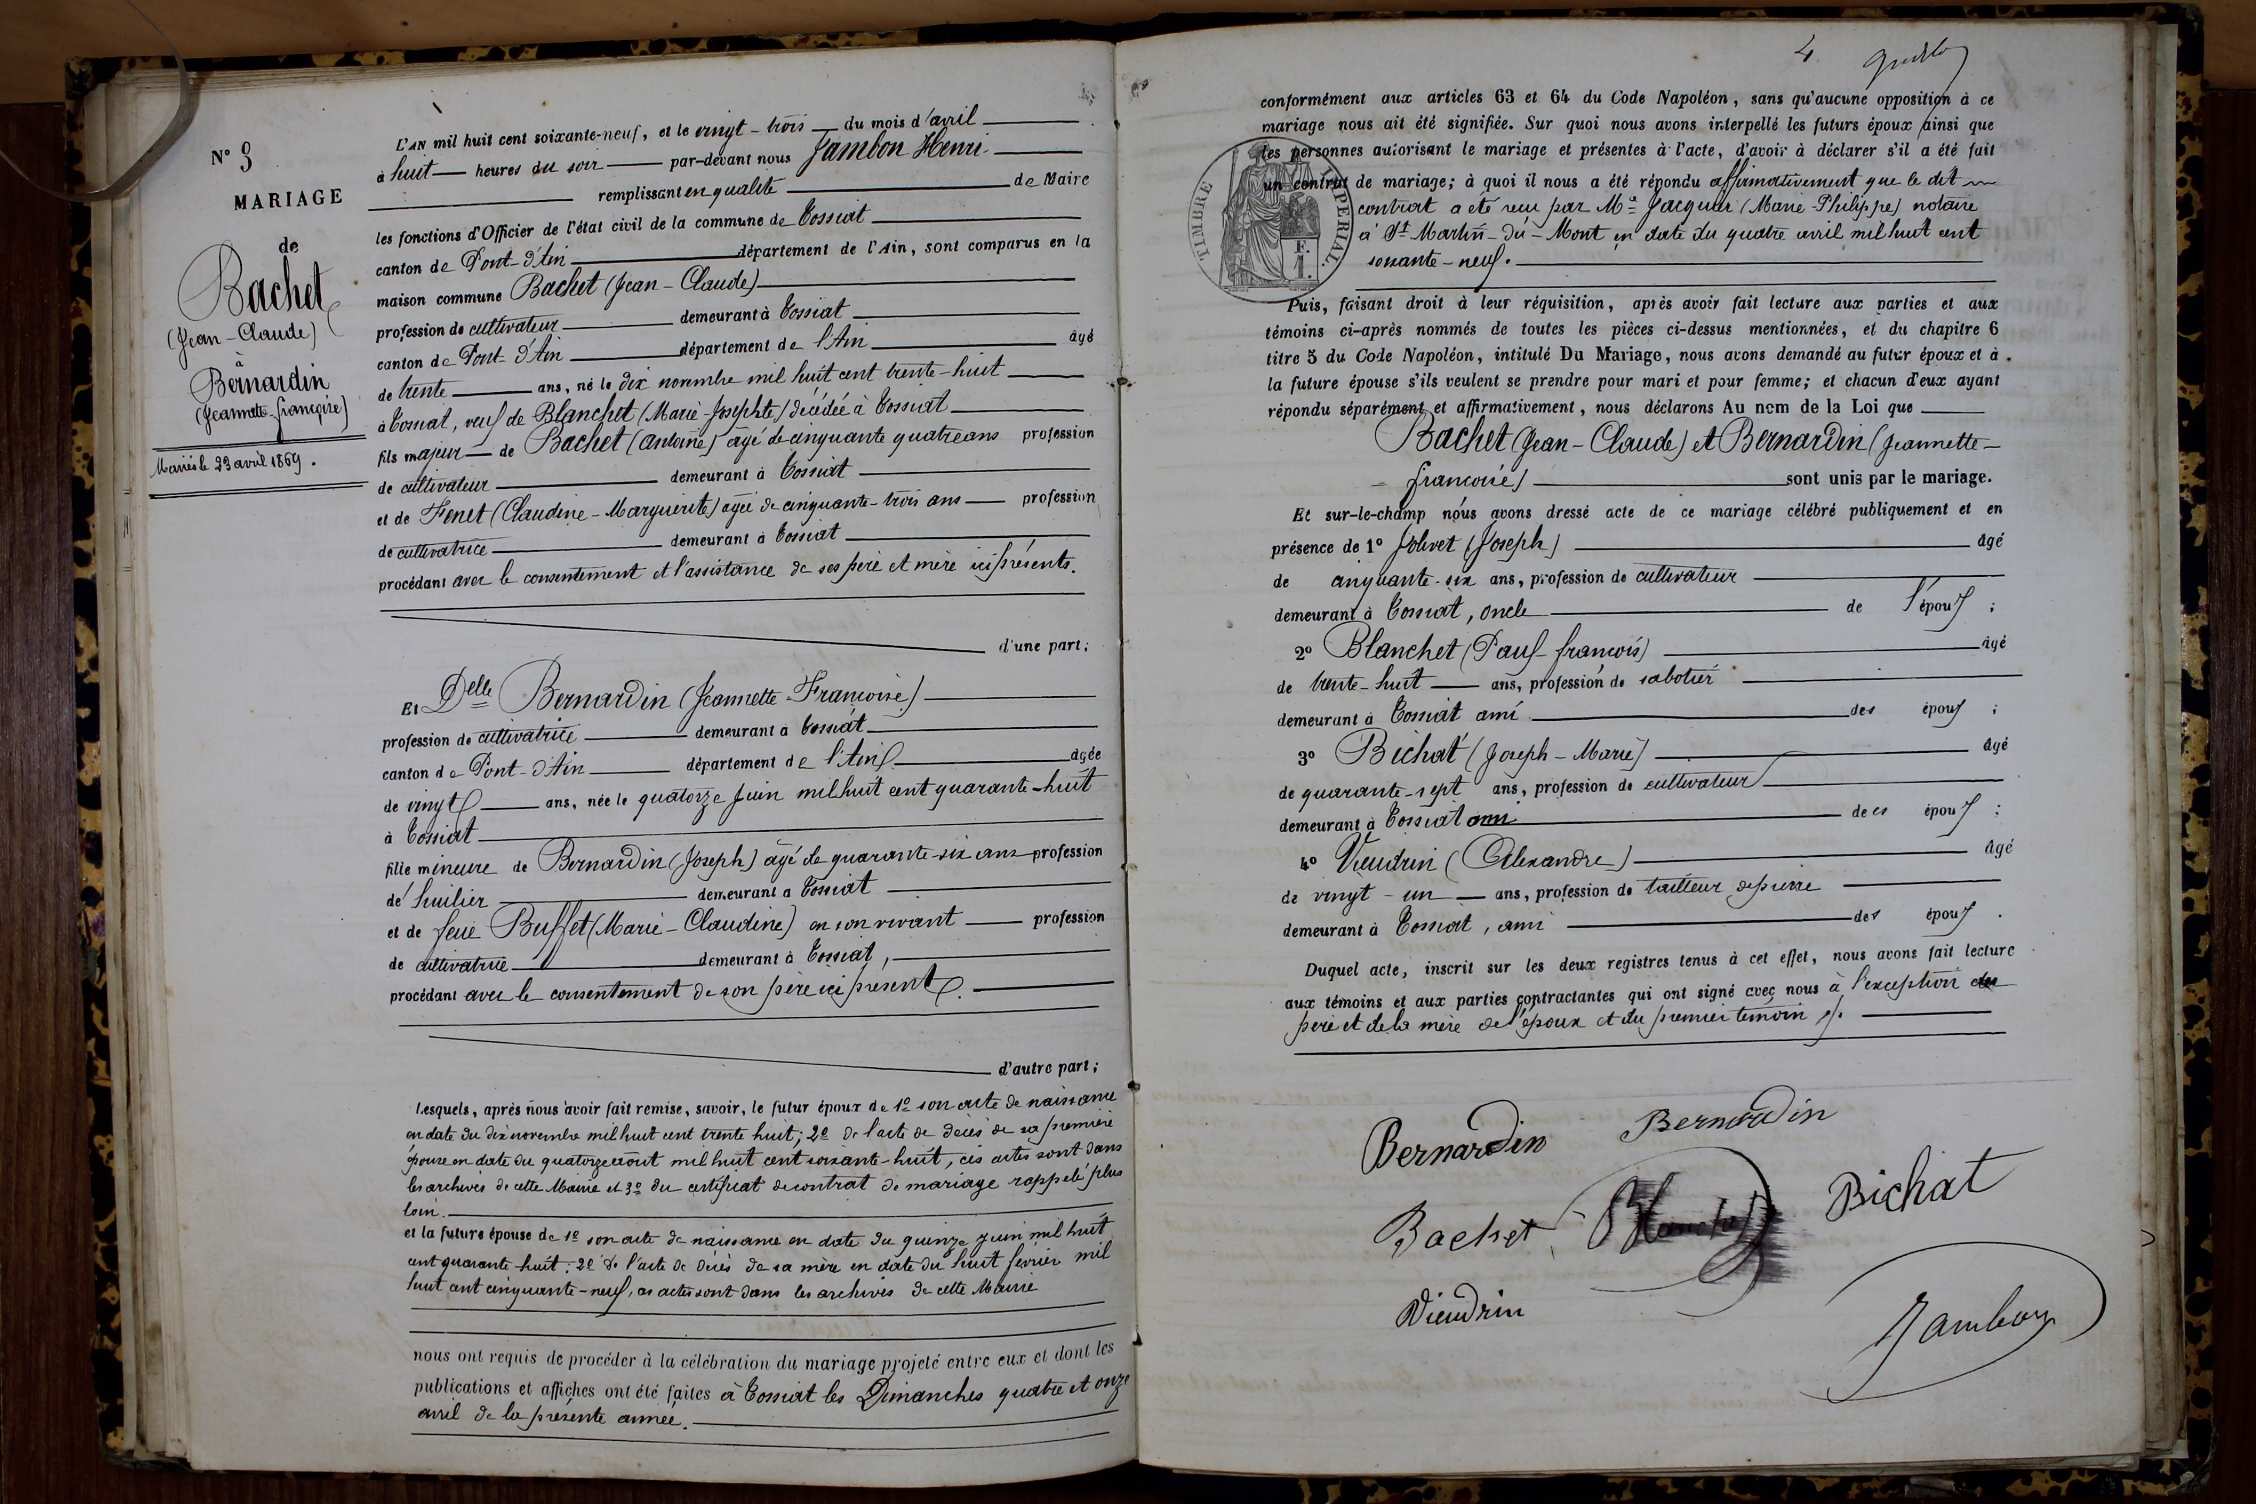 N° 3
MARIAGE
de
Bachet
(Jean-Claude)
à
Bernardin
(Jeannette-françoise)
Mariés le 23 avril 1869.
L'AN mil huit cent soixante-neuf, et le vingt-trois du mois d'avril
à huit heures du soir par-devant nous Jambon Henri
remplissant en qualité de Maire
les fonctions d'Officier de l'état civil de la commune de Tossiat
canton de Pont-d'Ain département de l'Ain, sont comparus en la
maison commune Bachet (Jean-Claude)
profession de cultivateur demeurant à Tossiat
canton de Pont-d'Ain département de l'Ain âgé
de trente ans, né le dix novembre mil huit cent trente-huit
à Tossiat, veuf de Blanchet (Marie-Josephte) décédée à Tossiat
fils majeur de Bachet (Antoine) âgé de cinquante quatre ans profession
de cultivateur demeurant à Tossiat
et de Fenet (Claudine-Marguerite) âgée de cinquante-trois ans profession
de cultivatrice demeurant à Tossiat
procédant avec le consentement et l'assistance de ses père et mère ici présents.
d'une part;
Et Delle Bernardin (Jeannette-Françoise)
profession de cultivatrice demeurant à Tossiat
canton de Pont-d'Ain département de l'Ain âgée
de vingt ans, née le quatorze juin mil huit cent quarante-huit
à Tossiat
fille mineure de Bernardin (Joseph) âgé de quarante-six ans profession
de huilier demeurant à Tossiat
et de feue Buffet (Marie-Claudine) en son vivant profession
de cultivatrice demeurant à Tossiat,
procédant avec le consentement de son père ici présent.
d'autre part;
Lesquels, après nous avoir fait remise, savoir, le futur époux de 1° son acte de naissance
en date du dix novembre mil huit cent trente huit; 2° de l'acte de décès de sa première
épouse en date du quatorze août mil huit cent soixante-huit, ces actes sont dans
les archives de cette Mairie et 3° du certificat de contrat de mariage rappelé plus
loin.
et la future épouse de 1° son acte de naissance en date du quinze juin mil huit
cent quarante-huit; 2° de l'acte de décès de sa mère en date du huit février mil
huit cent cinquante-neuf, ces actes sont dans les archives de cette Mairie
nous ont requis de procéder à la célébration du mariage projeté entre eux et dont les
publications et affiches ont été faites à Tossiat les Dimanches quatre et onze
avril de la présente année.
4
conformément aux articles 63 et 64 du Code Napoléon, sans qu'aucune opposition à ce
mariage nous ait été signifiée. Sur quoi nous avons interpellé les futurs époux ainsi que
les personnes autorisant le mariage et présentes à l'acte, d'avoir à déclarer s'il a été fait
un contrat de mariage; à quoi il nous a été répondu affirmativement que le dit
contrat a été reçu par Me Jacquier (Marie-Philippe) notaire
à St Martin-du-Mont en date du quatre avril mil huit cent
soixante-neuf.
TIMBRE IMPERIAL.
F.
1.
Puis, faisant droit à leur réquisition, après avoir fait lecture aux parties et aux
témoins ci-après nommés de toutes les pièces ci-dessus mentionnées, et du chapitre 6
titre 5 du Code Napoléon, intitulé Du Mariage, nous avons demandé au futur époux et à
la future épouse s'ils veulent se prendre pour mari et pour femme; et chacun d'eux ayant
répondu séparément et affirmativement, nous déclarons Au nom de la Loi que
Bachet (Jean-Claude) et Bernardin (Jeannette-
françoise) sont unis par le mariage.
Et sur-le-champ nous avons dressé acte de ce mariage célébré publiquement et en
présence de 1° Jolivet (Joseph) âgé
de cinquante-six ans, profession de cultivateur
demeurant à Tossiat, oncle de l'époux;
2° Blanchet (Paul-françois) âgé
de trente-huit ans, profession de sabotier
demeurant à Tossiat ami des époux;
3° Bichat (Joseph-Marie) âgé
de quarante-sept ans, profession de cultivateur
demeurant à Tossiat ami des époux;
4° Vieudrin (Alexandre) âgé
de vingt-un ans, profession de tailleur de pierre
demeurant à Tossiat, ami des époux.
Duquel acte, inscrit sur les deux registres tenus à cet effet, nous avons fait lecture
aux témoins et aux parties contractantes qui ont signé avec nous à l'exception des
père et de la mère de l'époux et du premier témoin.
Bernardin Bernardin
Bachet Blanchet Bichat
Vieudrin Jambon